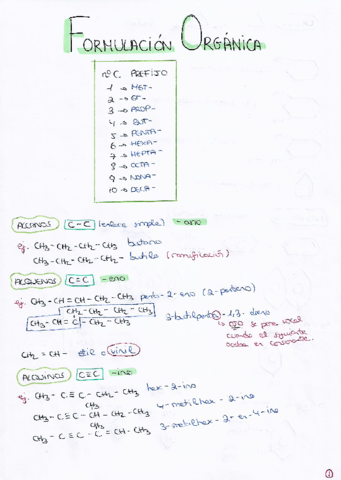 FORMULACIÓN ORGÁNICA
nº C. PREFIJO
1 → MET-
2 → ET-
3 → PROP-
4 → BUT-
5 → PENTA-
6 → HEXA-
7 → HEPTA-
8 → OCTA-
9 → NONA-
10 → DECA-
ALCANOS C-C (enlace simple) -ano
ej. CH3-CH2-CH2-CH3 butano
CH3-CH2-CH2-CH2- butilo (ramificación)
ALQUENOS C=C -eno
ej. CH3-CH=CH-CH2-CH3 pent-2-eno (2-penteno)
CH2-CH2-CH2-CH3
CH3-CH=C-CH2-CH3
→ OJO se pone vocal
cuando el siguiente
CH2=CH- etil o vinil
ALQUINOS C≡C -ino
ej. CH3-C≡C-CH2-CH3 hex-2-ino
CH3
CH3-C≡C-CH-CH2-CH3 4-metilhex-2-ino
CH3
CH3-C≡C-C=CH-CH3 3-metilhex-2-en-4-ino
1